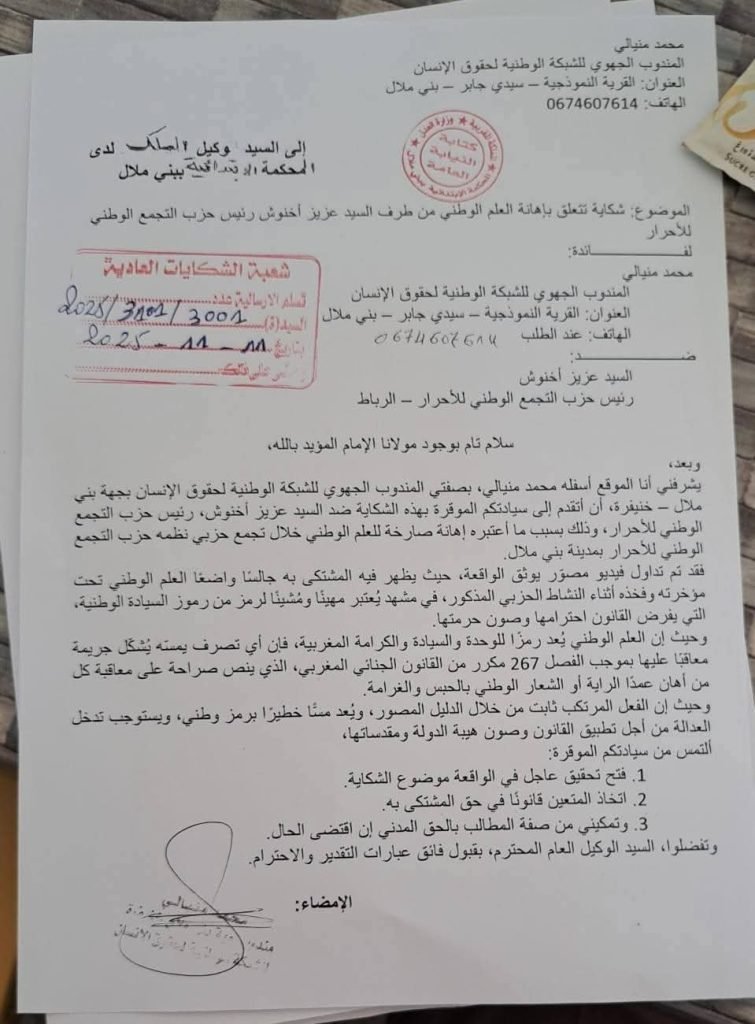 محمد منيالي
المندوب الجهوي للشبكة الوطنية لحقوق الإنسان
العنوان: القرية النموذجية – سيدي جابر – بني ملال
الهاتف: 0674607614
المملكة المغربية ★ وزارة العدل
كتابة
النيابة
العامة
إلى السيد وكيل الملك لدى
المحكمة الابتدائية ببني ملال
الموضوع: شكاية تتعلق بإهانة العلم الوطني من طرف السيد عزيز أخنوش رئيس حزب التجمع الوطني
للأحرار
لفــــــــائدة:
محمد منيالي
المندوب الجهوي للشبكة الوطنية لحقوق الإنسان
العنوان: القرية النموذجية – سيدي جابر – بني ملال
الهاتف: عند الطلب 0674607614
شعبة الشكايات العادية
تسلم الارسالية عدد
2025/3101/3001
السيد(ة)
بتاريخ 11 - 11 - 2025
ضــــــــد:
السيد عزيز أخنوش
رئيس حزب التجمع الوطني للأحرار – الرباط
سلام تام بوجود مولانا الإمام المؤيد بالله،
وبعد،
يشرفني أنا الموقع أسفله محمد منيالي، بصفتي المندوب الجهوي للشبكة الوطنية لحقوق الإنسان بجهة بني
ملال – خنيفرة، أن أتقدم إلى سيادتكم الموقرة بهذه الشكاية ضد السيد عزيز أخنوش، رئيس حزب التجمع
الوطني للأحرار، وذلك بسبب ما أعتبره إهانة صارخة للعلم الوطني خلال تجمع حزبي نظمه حزب التجمع
الوطني للأحرار بمدينة بني ملال.
فقد تم تداول فيديو مصوّر يوثق الواقعة، حيث يظهر فيه المشتكى به جالسًا واضعًا العلم الوطني تحت
مؤخرته وفخذه أثناء النشاط الحزبي المذكور، في مشهد يُعتبر مهينًا ومُشينًا لرمز من رموز السيادة الوطنية،
التي يفرض القانون احترامها وصون حرمتها.
وحيث إن العلم الوطني يُعد رمزًا للوحدة والسيادة والكرامة المغربية، فإن أي تصرف يمسه يُشكّل جريمة
معاقبًا عليها بموجب الفصل 267 مكرر من القانون الجنائي المغربي، الذي ينص صراحة على معاقبة كل
من أهان عمدًا الراية أو الشعار الوطني بالحبس والغرامة.
وحيث إن الفعل المرتكب ثابت من خلال الدليل المصور، ويُعد مسًّا خطيرًا برمز وطني، ويستوجب تدخل
العدالة من أجل تطبيق القانون وصون هيبة الدولة ومقدساتها،
ألتمس من سيادتكم الموقرة:
1. فتح تحقيق عاجل في الواقعة موضوع الشكاية.
2. اتخاذ المتعين قانونًا في حق المشتكى به.
3. وتمكيني من صفة المطالب بالحق المدني إن اقتضى الحال.
وتفضلوا، السيد الوكيل العام المحترم، بقبول فائق عبارات التقدير والاحترام.
الإمضاء: